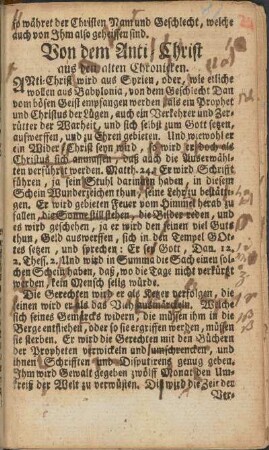 so währet der Christen Nam und Geschlecht, welche
auch von Ihm also geheissen sind.
Von dem Anti-Christ
aus den alten Chronicken.
ANti-Christ wird aus Syrien, oder, wie etliche
wollen aus Babylonia, von dem Geschlecht Dan
vom bösen Geist empfangen werden als ein Prophet
und Christus der Lügen, auch ein Verkehrer und Zer-
rütter der Warheit, und sich selbst zum Gott setzen,
aufwerffen, und zu Ehren gebieten. Und wiewohl er
ein Wider-Christ seyn wird, so wird er doch als
Christus sich anmassen, daß auch die Auserwähl-
ten verführt werden. Matth. 24. Er wird Schrifft
führen, ja sein Stuhl darinnen haben, in diesem
Schein Wunderzeichen thun, seine Lehr zu bestäti-
gen. Er wird gebieten Feuer vom Himmel herab zu
fallen, die Sonne still stehen, die Bilder reden, und
es wird geschehen, ja er wird den seinen viel Guts
thun, Geld auswerffen, sich in den Tempel GOt-
tes setzen, und sprechen: Er sey Gott, Dan. 12.
2. Thess. 2. Und wird in Summa die Sach einen sol-
chen Schein haben, daß, wo die Tage nicht verkürtzt
werden, kein Mensch selig würde.
Die Gerechten wird er als Ketzer verfolgen, die
seinen wird er als das Vieh ausmärcken. Welche
sich seines Gemercks widern, die müssen ihm in die
Berge entfliehen, oder so sie ergriffen werden, müssen
sie sterben. Er wird die Gerechten mit den Büchern
der Propheten verwickeln und umschrencken, und
ihnen Schrifften und Disputirens genug geben.
Ihm wird Gewalt gegeben zwölff Monat den Um-
kreiß der Welt zu verwüsten. Diß wird die Zeit der
Ver-